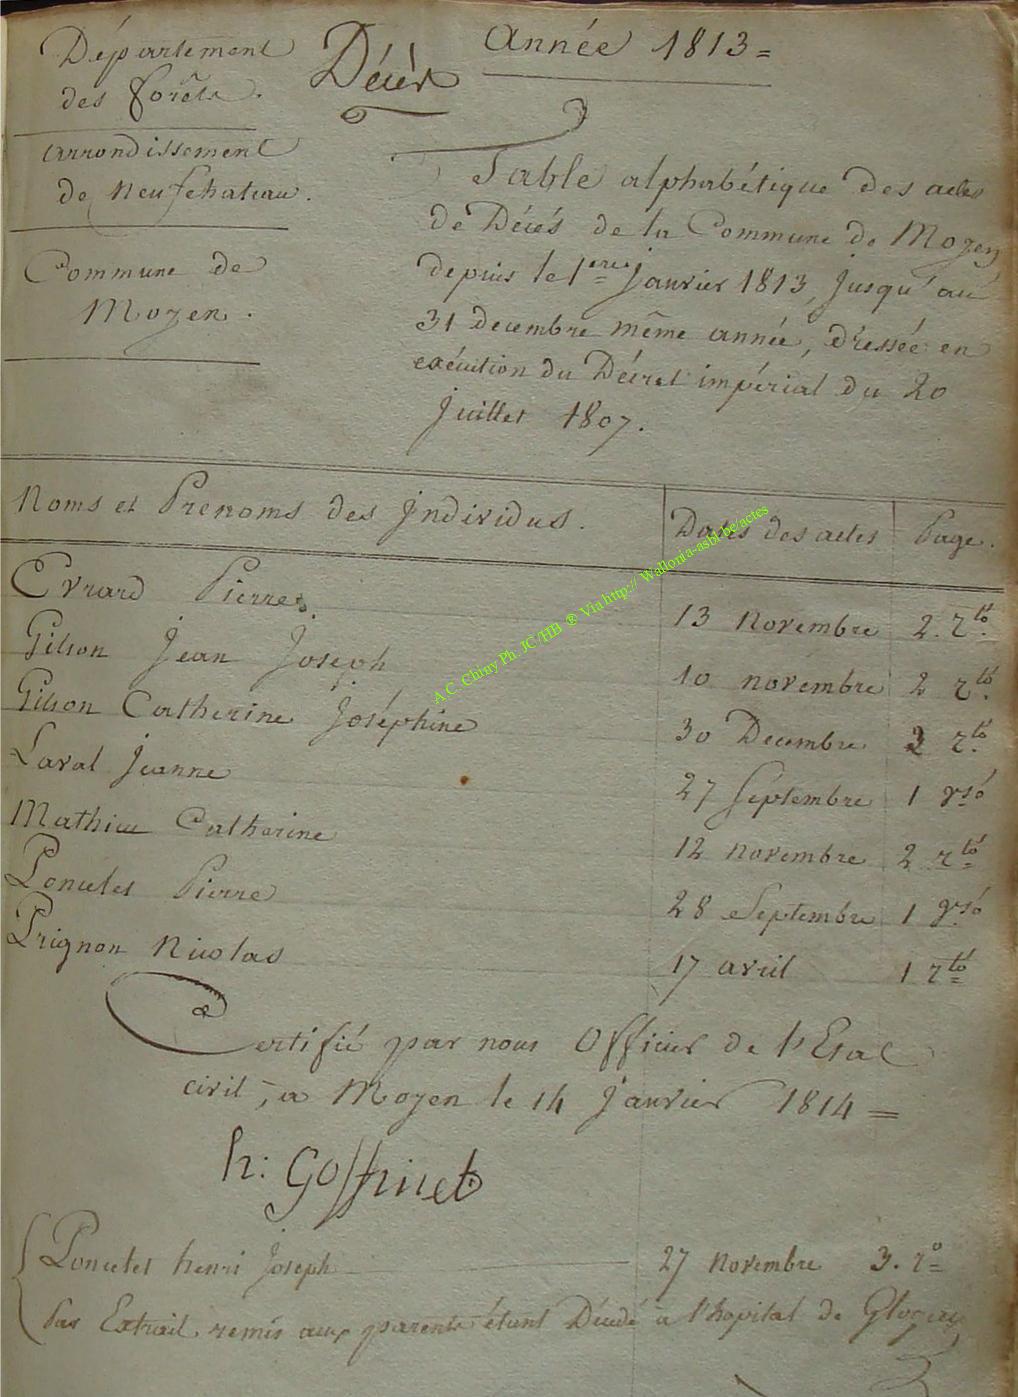 Département
des forêts.
Décès
Année 1813=
arrondissement
de Neufchateau.
Commune de
Moyen.
Table alphabétique des actes
de Décés de la Commune de Moyen
depuis le 1er janvier 1813, jusqu'au
31 decembre même année, dressée en
exécution du Décret impérial du 20
juillet 1807.
Noms et Prenoms des jndividus. Dates des actes Page.
Evrard Pierre 13 Novembre 2. rto.
Gilson jean joseph 10 novembre 2 rto.
Gilson Catherine joséphine 30 Decembre rto.
Laval jeanne 27 Septembre 1 vso
Mathieu Catherine 12 novembre 2 rto
Poncelet Pierre 28 Septembre 1 vso
Prignon Nicolas 17 avril 1 rto
Certifié par nous Officier de l'Etat
civil, a Moyen le 14 janvier 1814=
h: Goffinet
Poncelet henri joseph 27 novembre 3. ro
par Extrait remis aux parents étant Décédé à l'hopital de
A C. Chiny Ph. JC/HB ® Via http:// Wallonia-asbl.be/actes